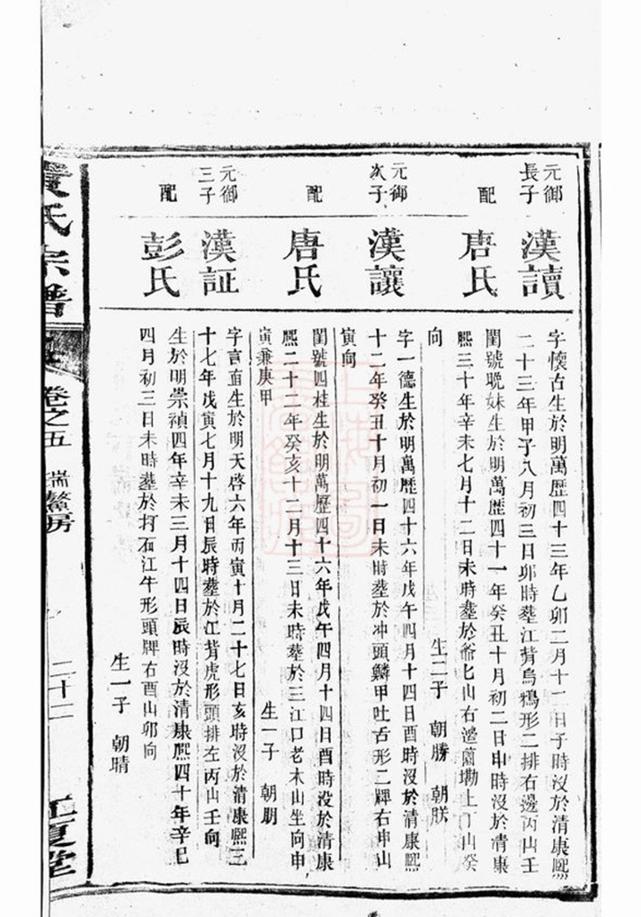 元御長子
漢讀
字懷古生於明萬歷四十三年乙卯二月十二日子時沒於清康熙
二十三年甲子八月初三日卯時塟江背烏鴉形二排右邊丙山壬
向
配
唐氏
閨號晚妹生於明萬歷四十一年癸丑十月初二日申時沒於清康
熙三十年辛未七月十二日未時塟於爺山右邊山癸
生二子 朝勝 朝朕
元御次子
漢讓
字一德生於明萬歷四十六年戊午四月十四日酉時沒於清康熙
十二年癸丑十月初一日未時塟於冲頭鱗甲吐舌形二牌右申山
寅向
配
唐氏
閨號四桂生於明萬歷四十六年戊午四月十四日酉時沒於清康
熙二十二年癸亥十二月十三日未時塟於三江口老木山坐向申
寅兼庚甲
生一子 朝朋
元御三子
漢証
字言直生於明天啓六年丙寅十月二十七日亥時沒於清康熙三
十七年戊寅七月十九日辰時塟於江背虎形頭排左丙山壬向
配
彭氏
生於明崇禎四年辛未三月十四日辰時沒於清康熙四十年辛巳
四月初三日未時塟於打石江牛形頭牌右酉山卯向
生一子 朝晴
氏宗譜
卷之五
瑞鰲房
二十二
江夏堂